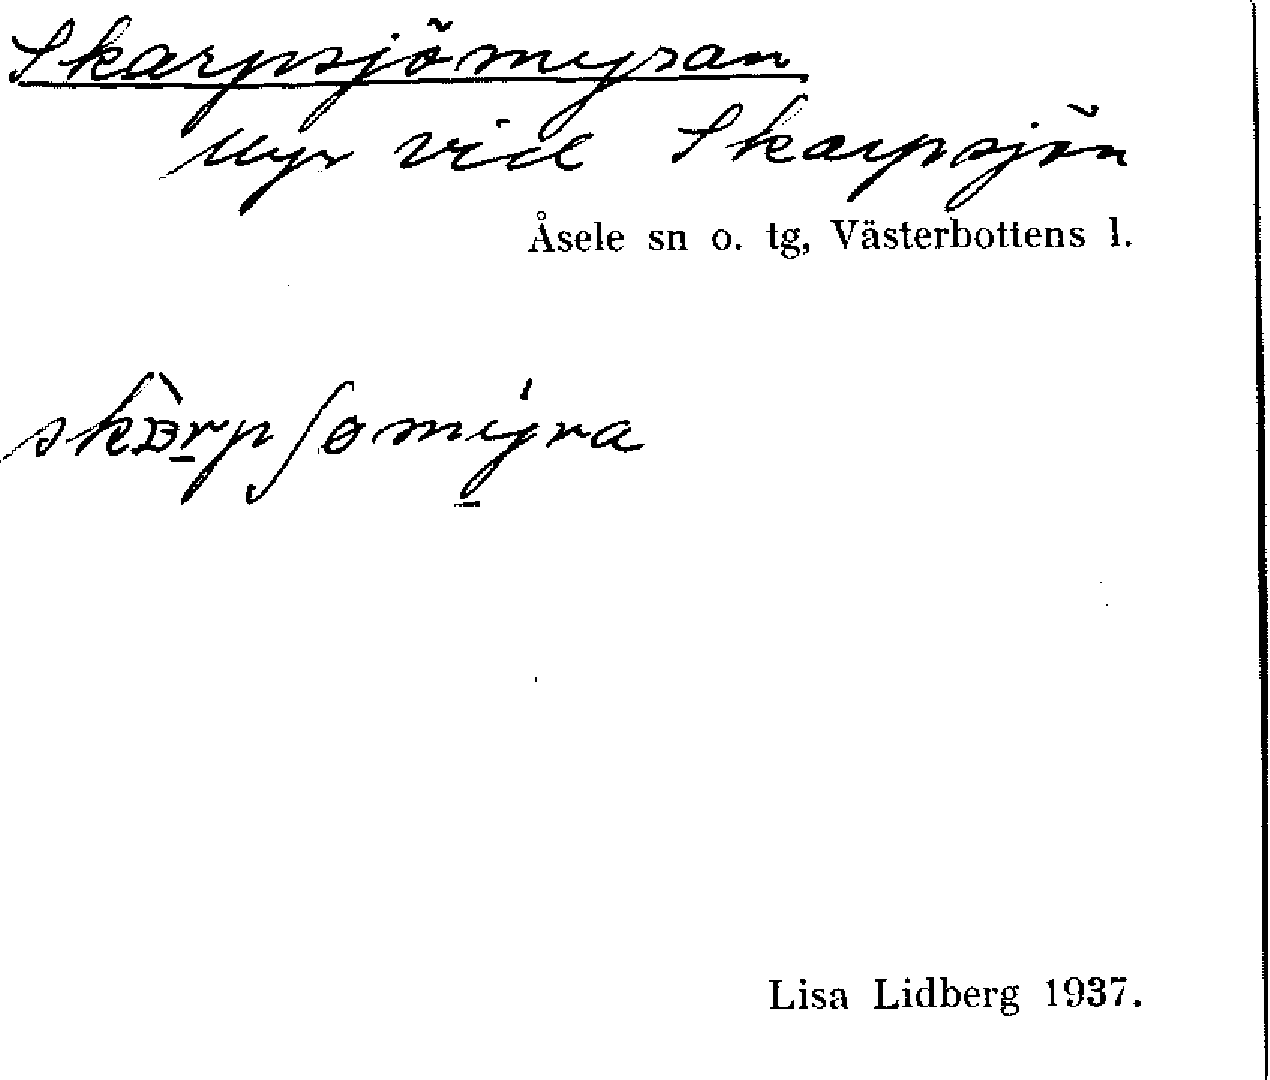 Skarpsjömyran
Myr vid Skarpsjön
Åsele sn o. tg, Västerbottens l.
Lisa Lidberg 1937.